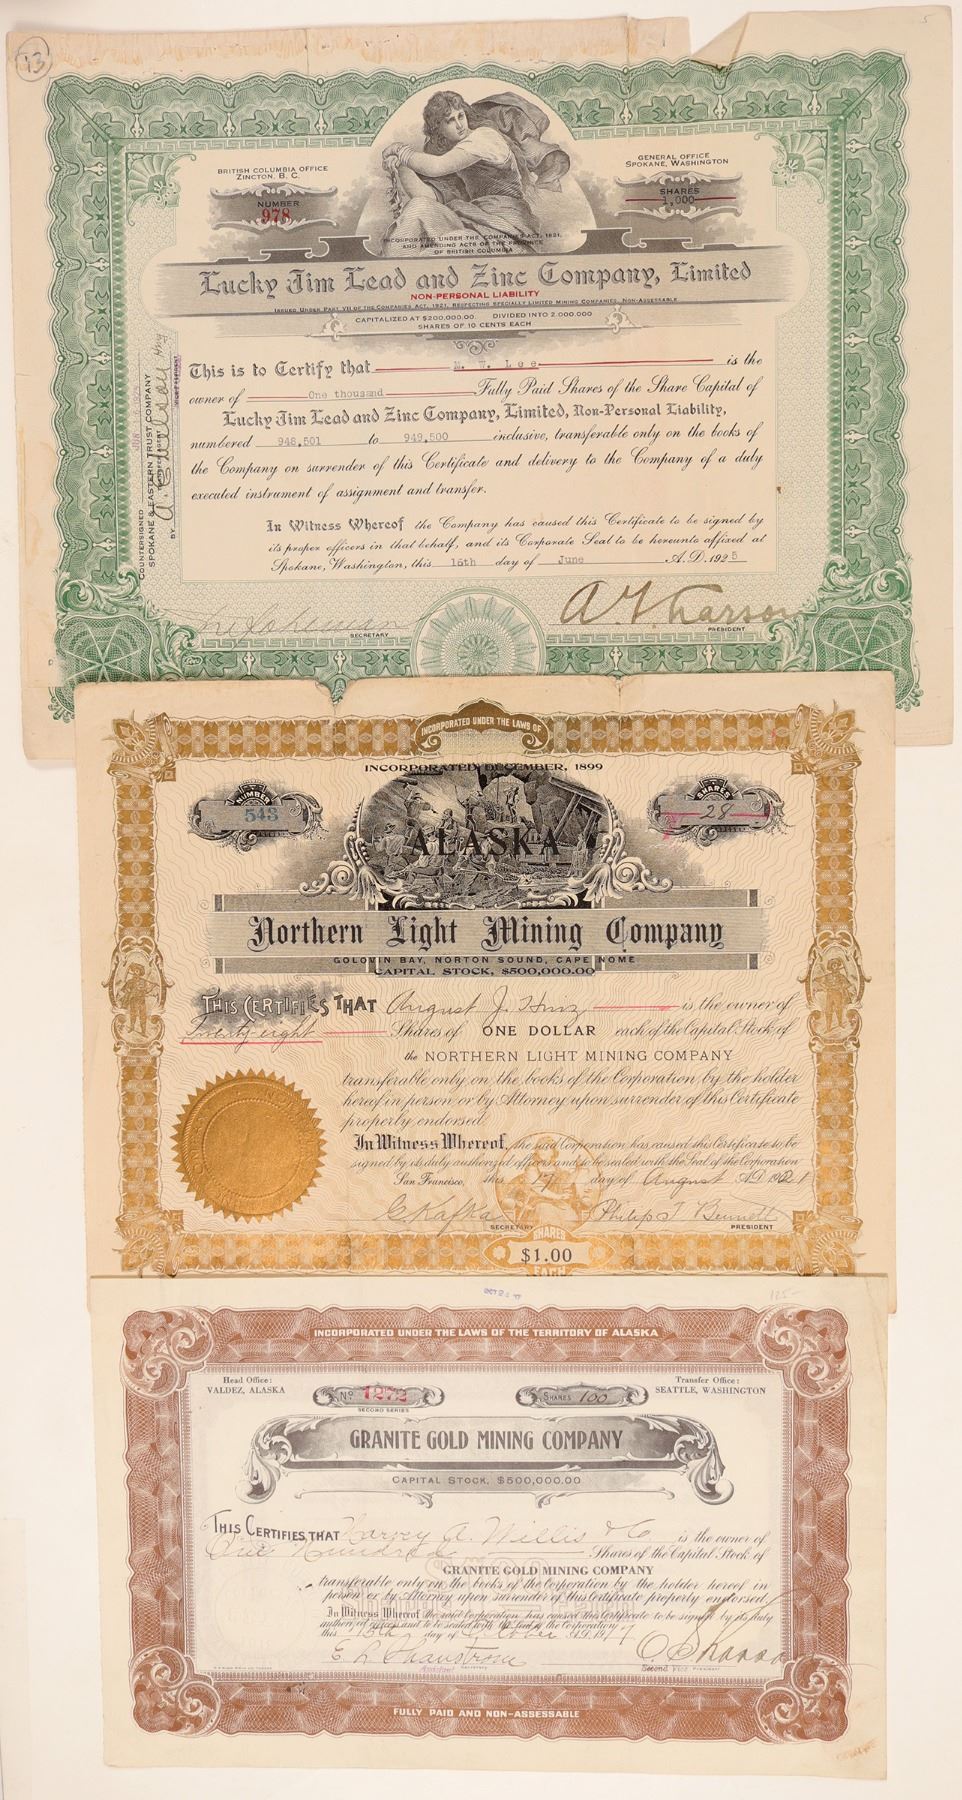 13
5
BRITISH COLUMBIA OFFICE
ZINCTON, B. C.
GENERAL OFFICE
SPOKANE, WASHINGTON
NUMBER
978
SHARES
1,000
INCORPORATED UNDER THE COMPANIES ACT, 1921,
AND AMENDING ACTS OF THE PROVINCE
OF BRITISH COLUMBIA
Lucky Jim Lead and Zinc Company, Limited
NON-PERSONAL LIABILITY
ISSUED UNDER PART VII OF THE COMPANIES ACT, 1921, RESPECTING SPECIALLY LIMITED MINING COMPANIES, NON-ASSESSABLE
CAPITALIZED AT $200,000.00 DIVIDED INTO 2,000,000
SHARES OF 10 CENTS EACH
This is to Certify that N. W. Lee is the
owner of One thousand Fully Paid Shares of the Share Capital of
Lucky Jim Lead and Zinc Company, Limited, Non-Personal Liability,
numbered 948,501 to 949,500 inclusive, transferable only on the books of
the Company on surrender of this Certificate and delivery to the Company of a duly
executed instrument of assignment and transfer.
In Witness Whereof the Company has caused this Certificate to be signed by
its proper officers in that behalf, and its Corporate Seal to be hereunto affixed at
Spokane, Washington, this 15th day of June A.D. 1925
COUNTERSIGNED
SPOKANE & EASTERN TRUST COMPANY
BY
SECRETARY
PRESIDENT
INCORPORATED UNDER THE LAWS OF
INCORPORATED DECEMBER, 1899
NUMBER
543
SHARES
28
ALASKA
Northern Light Mining Company
GOLOVIN BAY, NORTON SOUND, CAPE NOME
CAPITAL STOCK, $500,000.00
THIS CERTIFIES THAT August J. Hinz is the owner of
Twenty eight Shares of ONE DOLLAR each of the Capital Stock of
the NORTHERN LIGHT MINING COMPANY
transferable only on the books of the Corporation by the holder
hereof in person or by Attorney upon surrender of this Certificate
properly endorsed.
In Witness Whereof, the said Corporation has caused this Certificate to be
signed by its duly authorized officers and to be sealed with the Seal of the Corporation
San Francisco, this 17 day of August AD 190
G. Kafka SECRETARY Philip T Bennett PRESIDENT
SHARES
$1.00
EACH
125-
INCORPORATED UNDER THE LAWS OF THE TERRITORY OF ALASKA
Head Office:
VALDEZ, ALASKA
Transfer Office:
SEATTLE, WASHINGTON
No 1272
SECOND SERIES
SHARES 100
GRANITE GOLD MINING COMPANY
CAPITAL STOCK, $500,000.00
THIS CERTIFIES THAT Harvey A. Willis & Co is the owner of
One Hundred Shares of the Capital Stock of
GRANITE GOLD MINING COMPANY
transferable only on the books of the Corporation by the holder hereof in
person or by Attorney upon surrender of this Certificate properly endorsed.
In Witness Whereof the said Corporation has caused this Certificate to be signed by its duly
authorized officers and to be sealed with the Seal of the Corporation
this 15th day of October A.D. 1917
Assistant Secretary
Second Vice President
FULLY PAID AND NON-ASSESSABLE